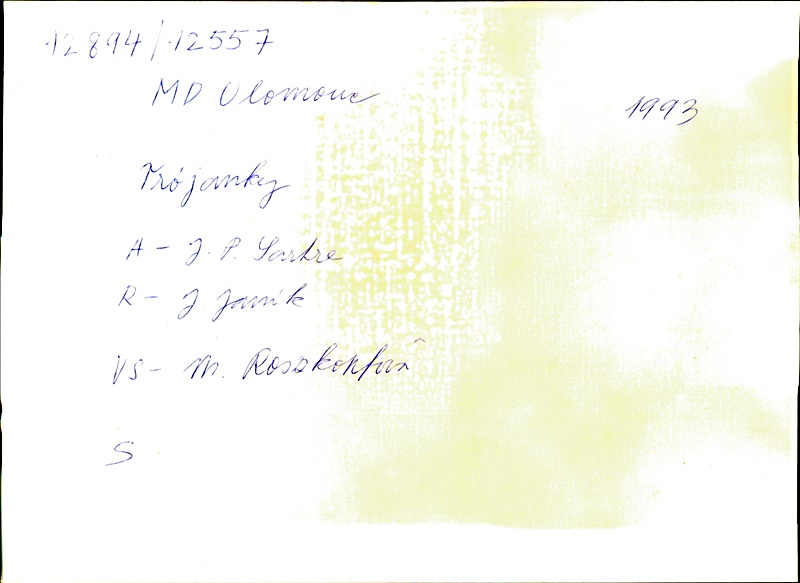 12894/12557
MD Olomouc
1993
Trójanky
A - J. P. Sartre
R - J Janik
VS - M. Roszkopfová
S